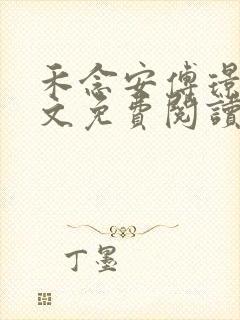 禾念安傅璟
文免費閱讀
丁墨